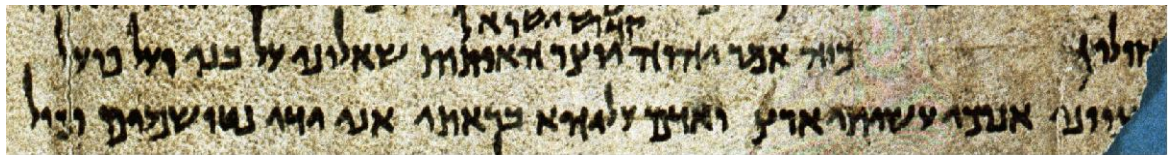 חולין כוה אמר יהוה יוצר האותות שאלוני על בני ועל פועל
קדוש ישראל
אנכי עשיתי ארץ ואדם עליהא בראתי אני ידי נטו שמים וכול